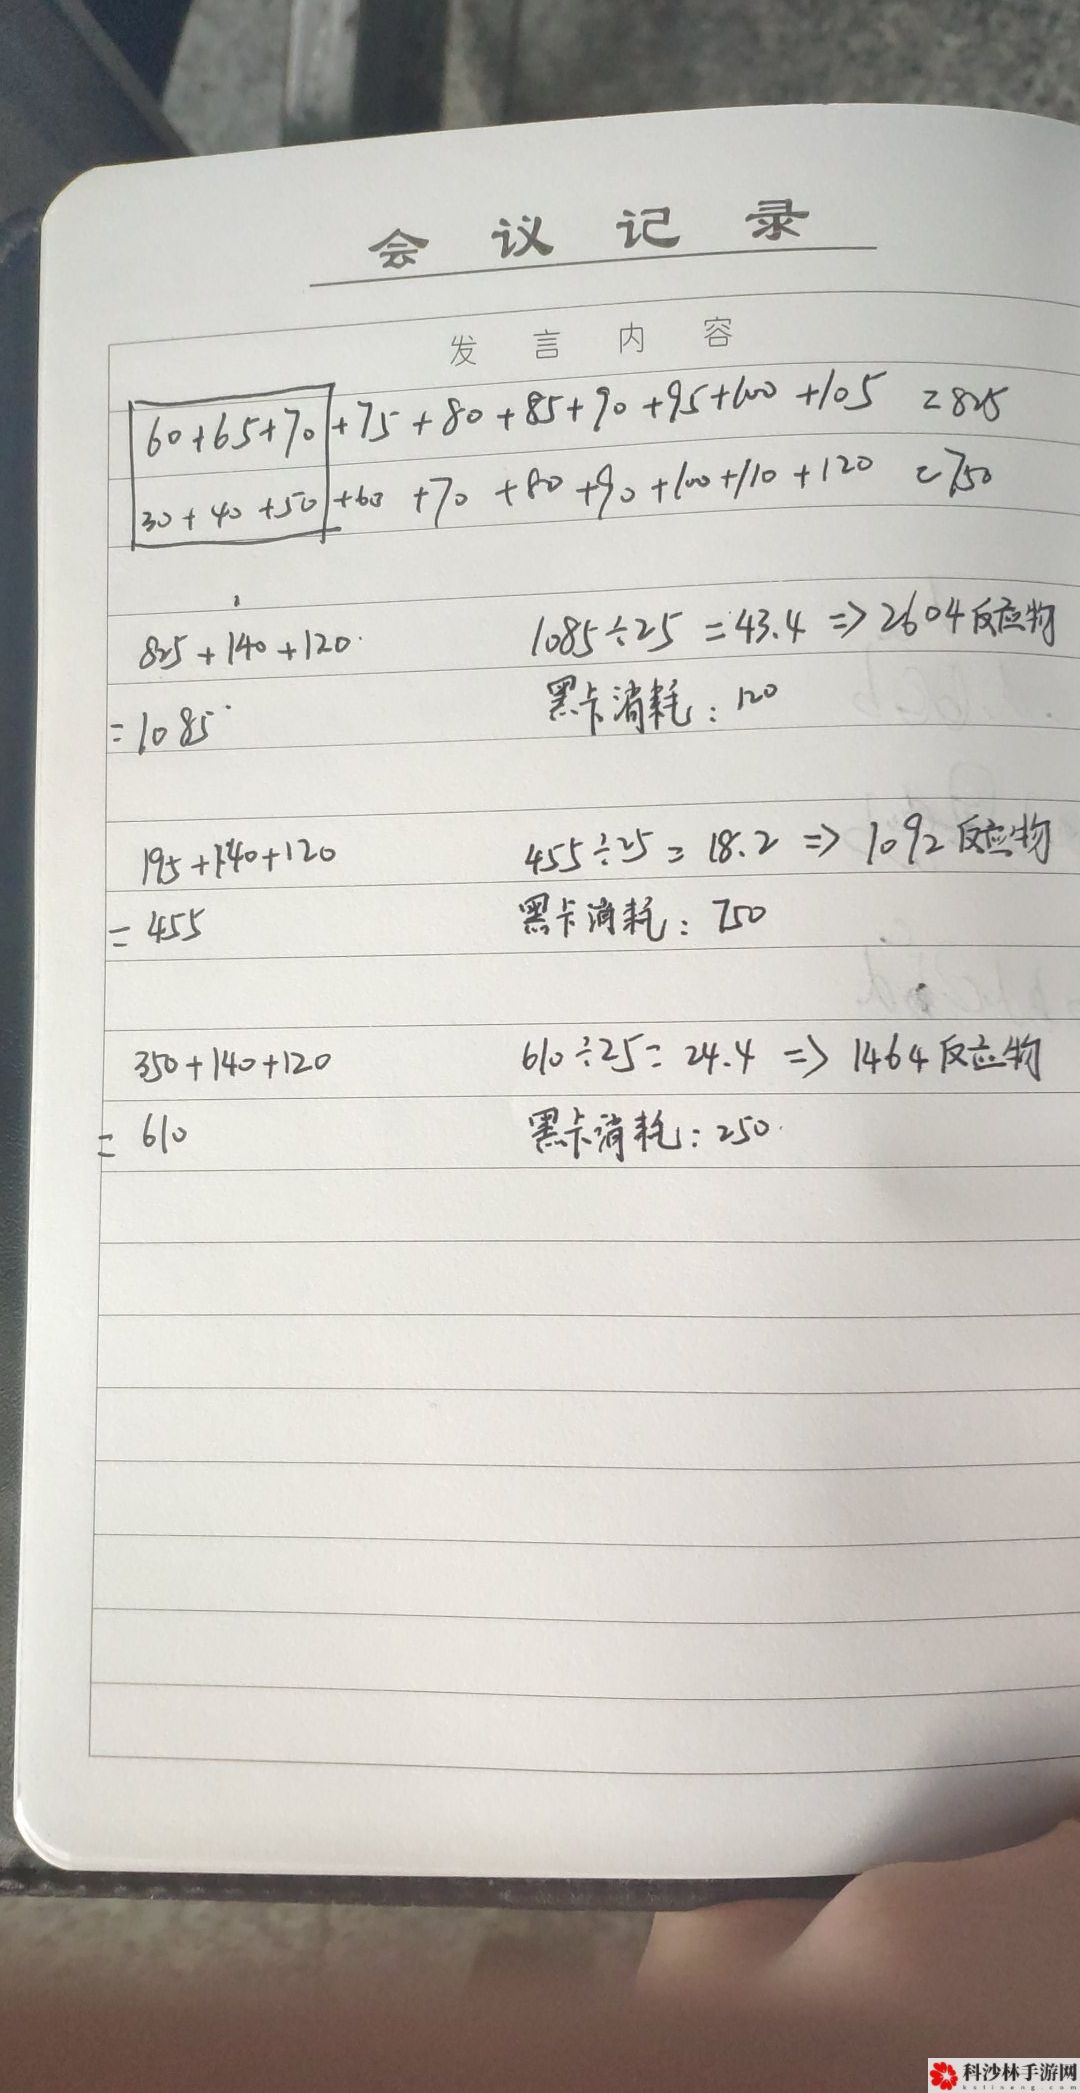 会议记录
发言内容
60+65+70+75+80+85+90+95+100+105 =825
30+40+50+60+70+80+90+100+110+120 =750
825+140+120
1085÷25=43.4 => 2604反应物
=1085
黑卡消耗: 120
195+140+120
455÷25=18.2 => 1092反应物
=455
黑卡消耗: 750
350+140+120
610÷25=24.4 => 1464反应物
=610
黑卡消耗:250
科沙林手游网